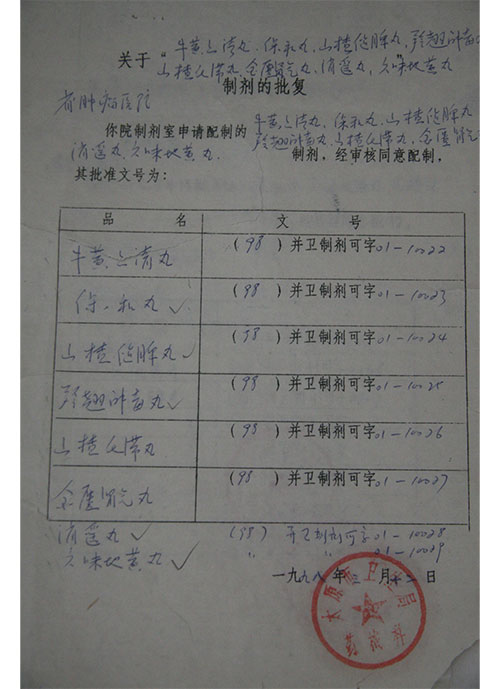 牛黄上清丸、保和丸、山楂健脾丸、
关于“山楂化滞丸、金匮肾气丸、消遥丸、六味地黄丸
制剂的批复
省肿瘤医院
牛黄上清丸、保和丸、山楂健脾丸
你院制剂室申请配制的 山楂化滞丸、金匮肾气
消遥丸、六味地黄丸. 制剂，经审核同意配制，
其批准文号为：
品 名 文 号
牛黄上清丸 (98) 并卫制剂可字01-10022
保和丸 ✓ (98) 并卫制剂可字01-10023
山楂健脾丸 ✓ (98) 并卫制剂可字01-10024
丸 ✓ (98) 并卫制剂可字01-10025
山楂化滞丸 (98) 并卫制剂可字01-10026
金匮肾气丸 (98) 并卫制剂可字01-10027
消遥丸 ✓ (98) 并卫制剂可字01-10028
六味地黄丸 ✓ " " 01-10029
一九九八年三月十二日
太原市卫生局
药政科